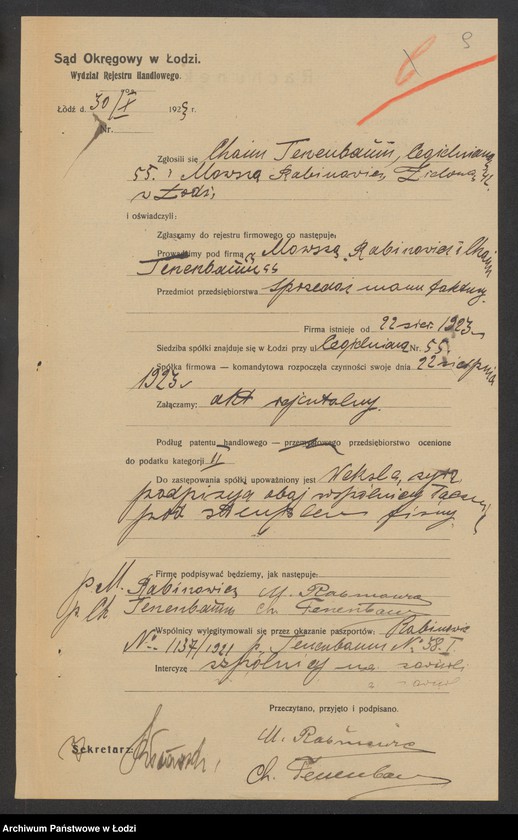 9
6
Sąd Okręgowy w Łodzi.
Wydział Rejestru Handlowego.
Łódź d. 30/X 1923 r.
Nr.
Zgłosili się Chaim Tenenbaum, Cegielniana
55. i Mowsza Rabinowicz, Zielona
w Łodzi
i oświadczyli:
Zgłaszamy do rejestru firmowego co następuje:
Prowadzimy pod firmą „Mowsza Rabinowicz i Chaim
Tenenbaum"
Przedmiot przedsiębiorstwa sprzedaż manufaktury.
Firma istnieje od 22 sier. 1923 r.
Siedziba spółki znajduje się w Łodzi przy ul Cegielnianą Nr. 55
Spółka firmowa — komandytowa rozpoczęła czynności swoje dnia 22 sierpnia
1923 r.
Załączamy: akt rejentalny.
Podług patentu handlowego — przemysłowego przedsiębiorstwo ocenione
do podatku kategorji II
Do zastępowania spółki upoważniony jest Weksla,
podpisują obaj wspólnicy łącznie
pod stemplem firmy.
Firmę podpisywać będziemy, jak następuje:
p. M. Rabinowicz M. Rabinowicz
p. Ch. Tenenbaum Ch. Tenenbaum
Wspólnicy wylegitymowali się przez okazanie paszportów: Rabinowicz
No 1137/1921 p. Tenenbaum No 38.I.
Intercyzę wspólnicy nie zawarli
Przeczytano, przyjęto i podpisano.
M. Rabinowicz
Sekretarz:
Ch. Tenenbaum
Archiwum Państwowe w Łodzi